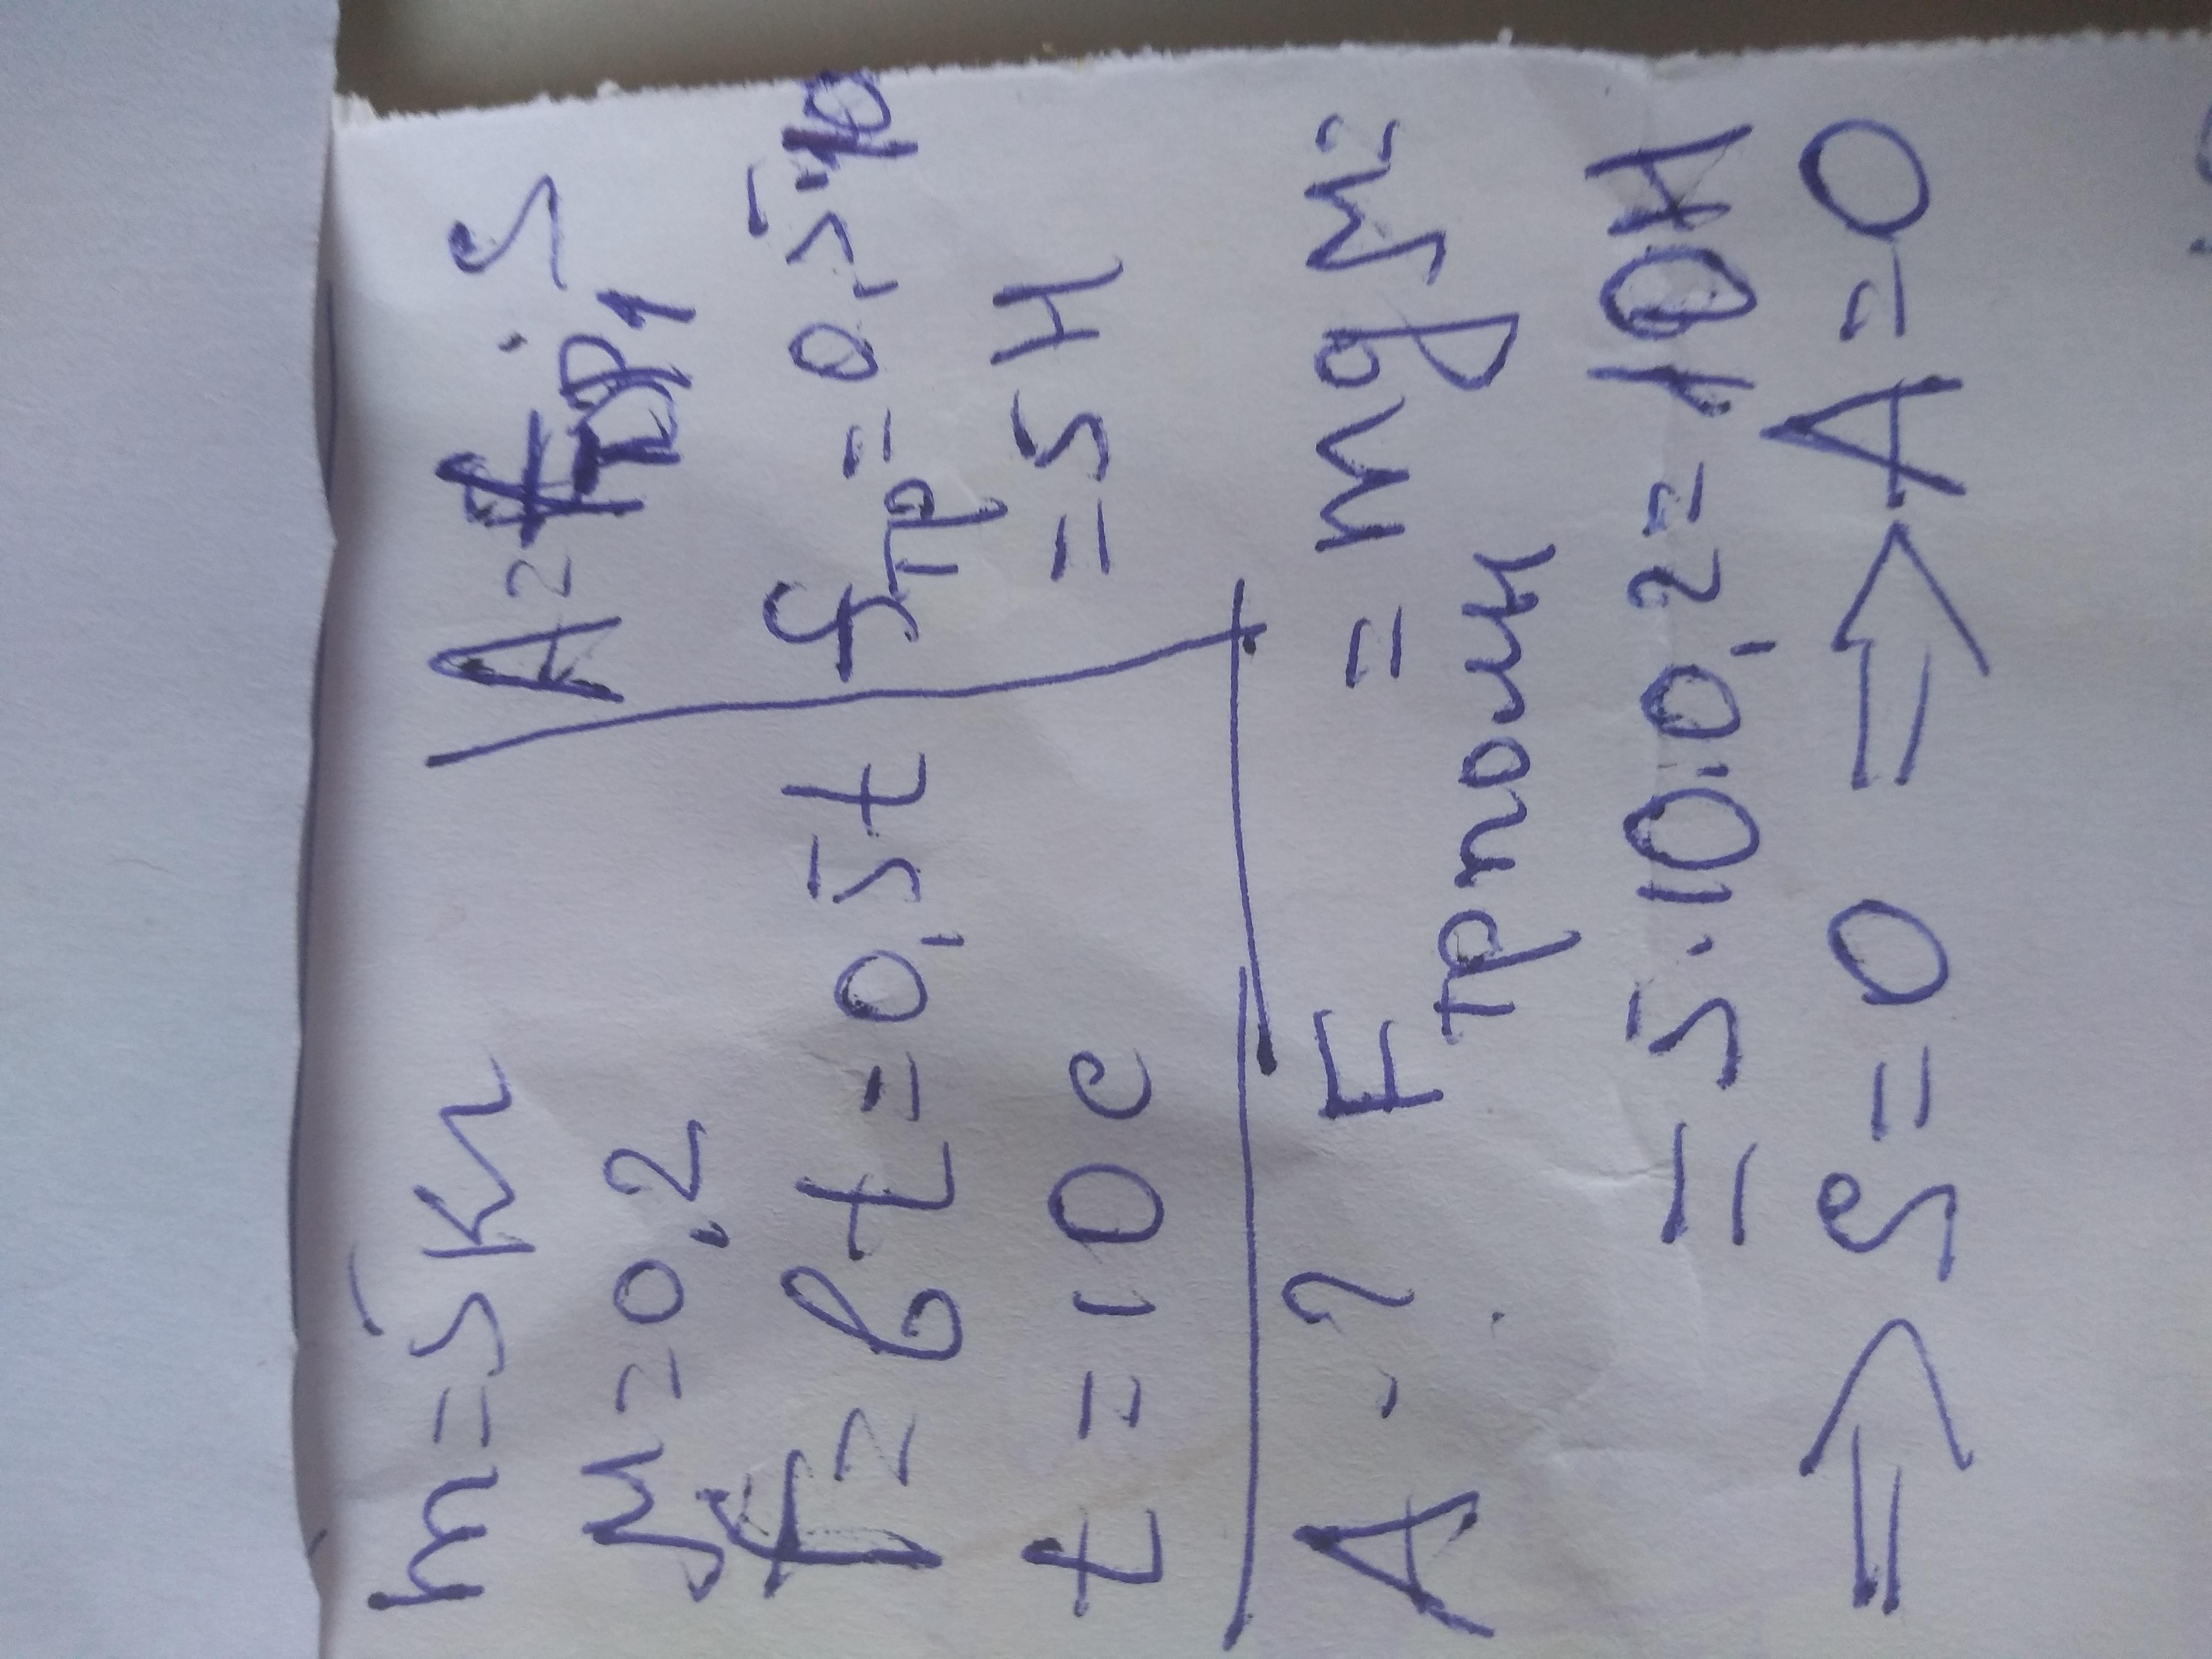 m = 5 кг
μ = 0,2
F = bt = 0,5t
t = 10 c
A - ?
A = Fтр · S
Fтр = 0,5·10
= 5Н
Fтр покоя = mgμ =
= 5·10·0,2 = 10Н
⇒ S = 0 ⇒ A = 0